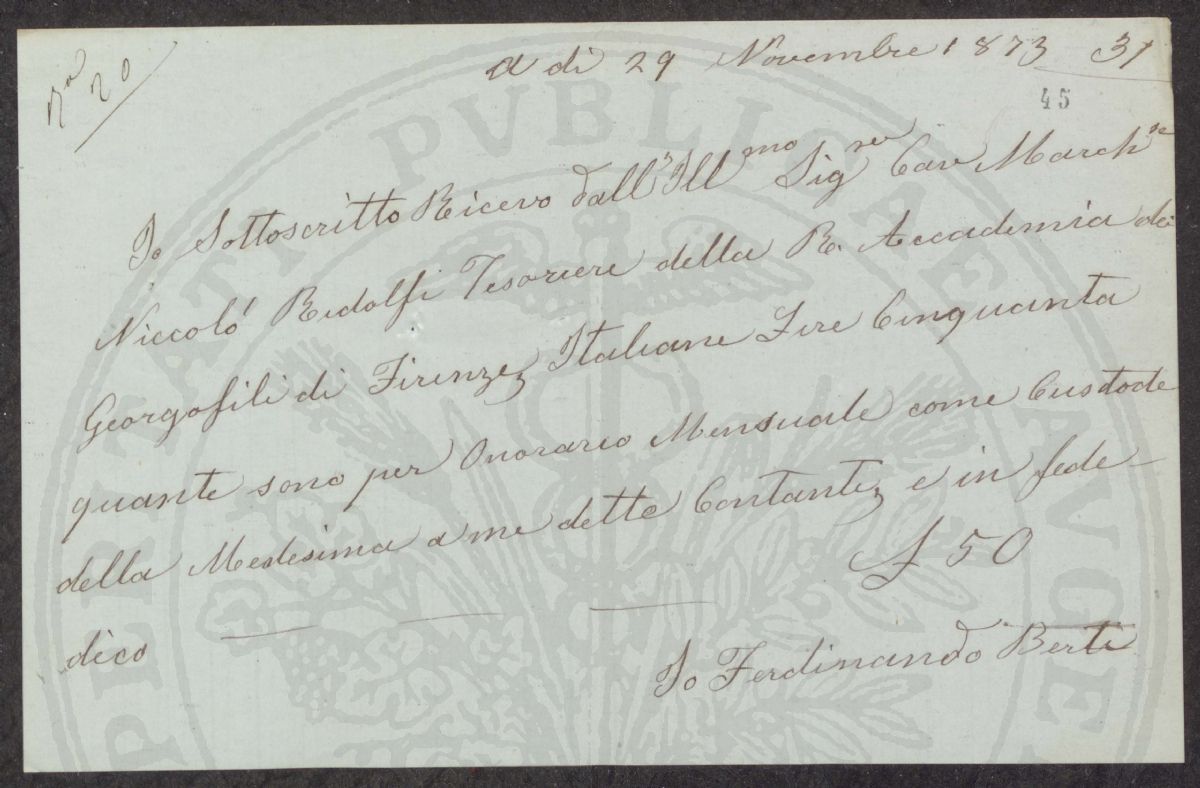 20
a di 29 Novembre 1873 31
45
Io Sottoscritto Ricevo dall'Ill.mo Sig.re Cav March.se
Niccolò Ridolfi Tesoriere della R. Accademia dei
Georgofili di Firenze, Italiane Lire Cinquanta
quante sono per Onorario Mensuale come Custode
della Medesima a me dette Contante, e in fede
dico
£ 50
Io Ferdinando Berti
PVBLICAE